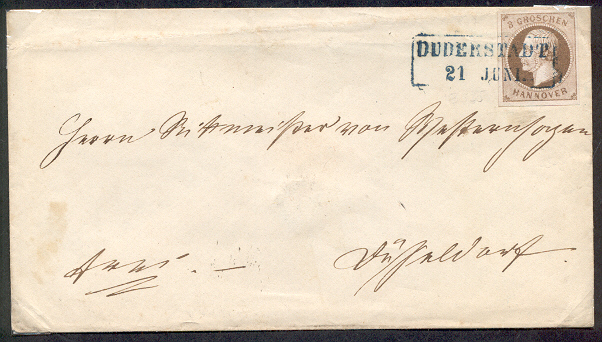 3 GROSCHEN
HANNOVER
DUDERSTADT
21 JUNI.
Herrn Rittmeister von Westernhagen
frei. —
Düsseldorf.